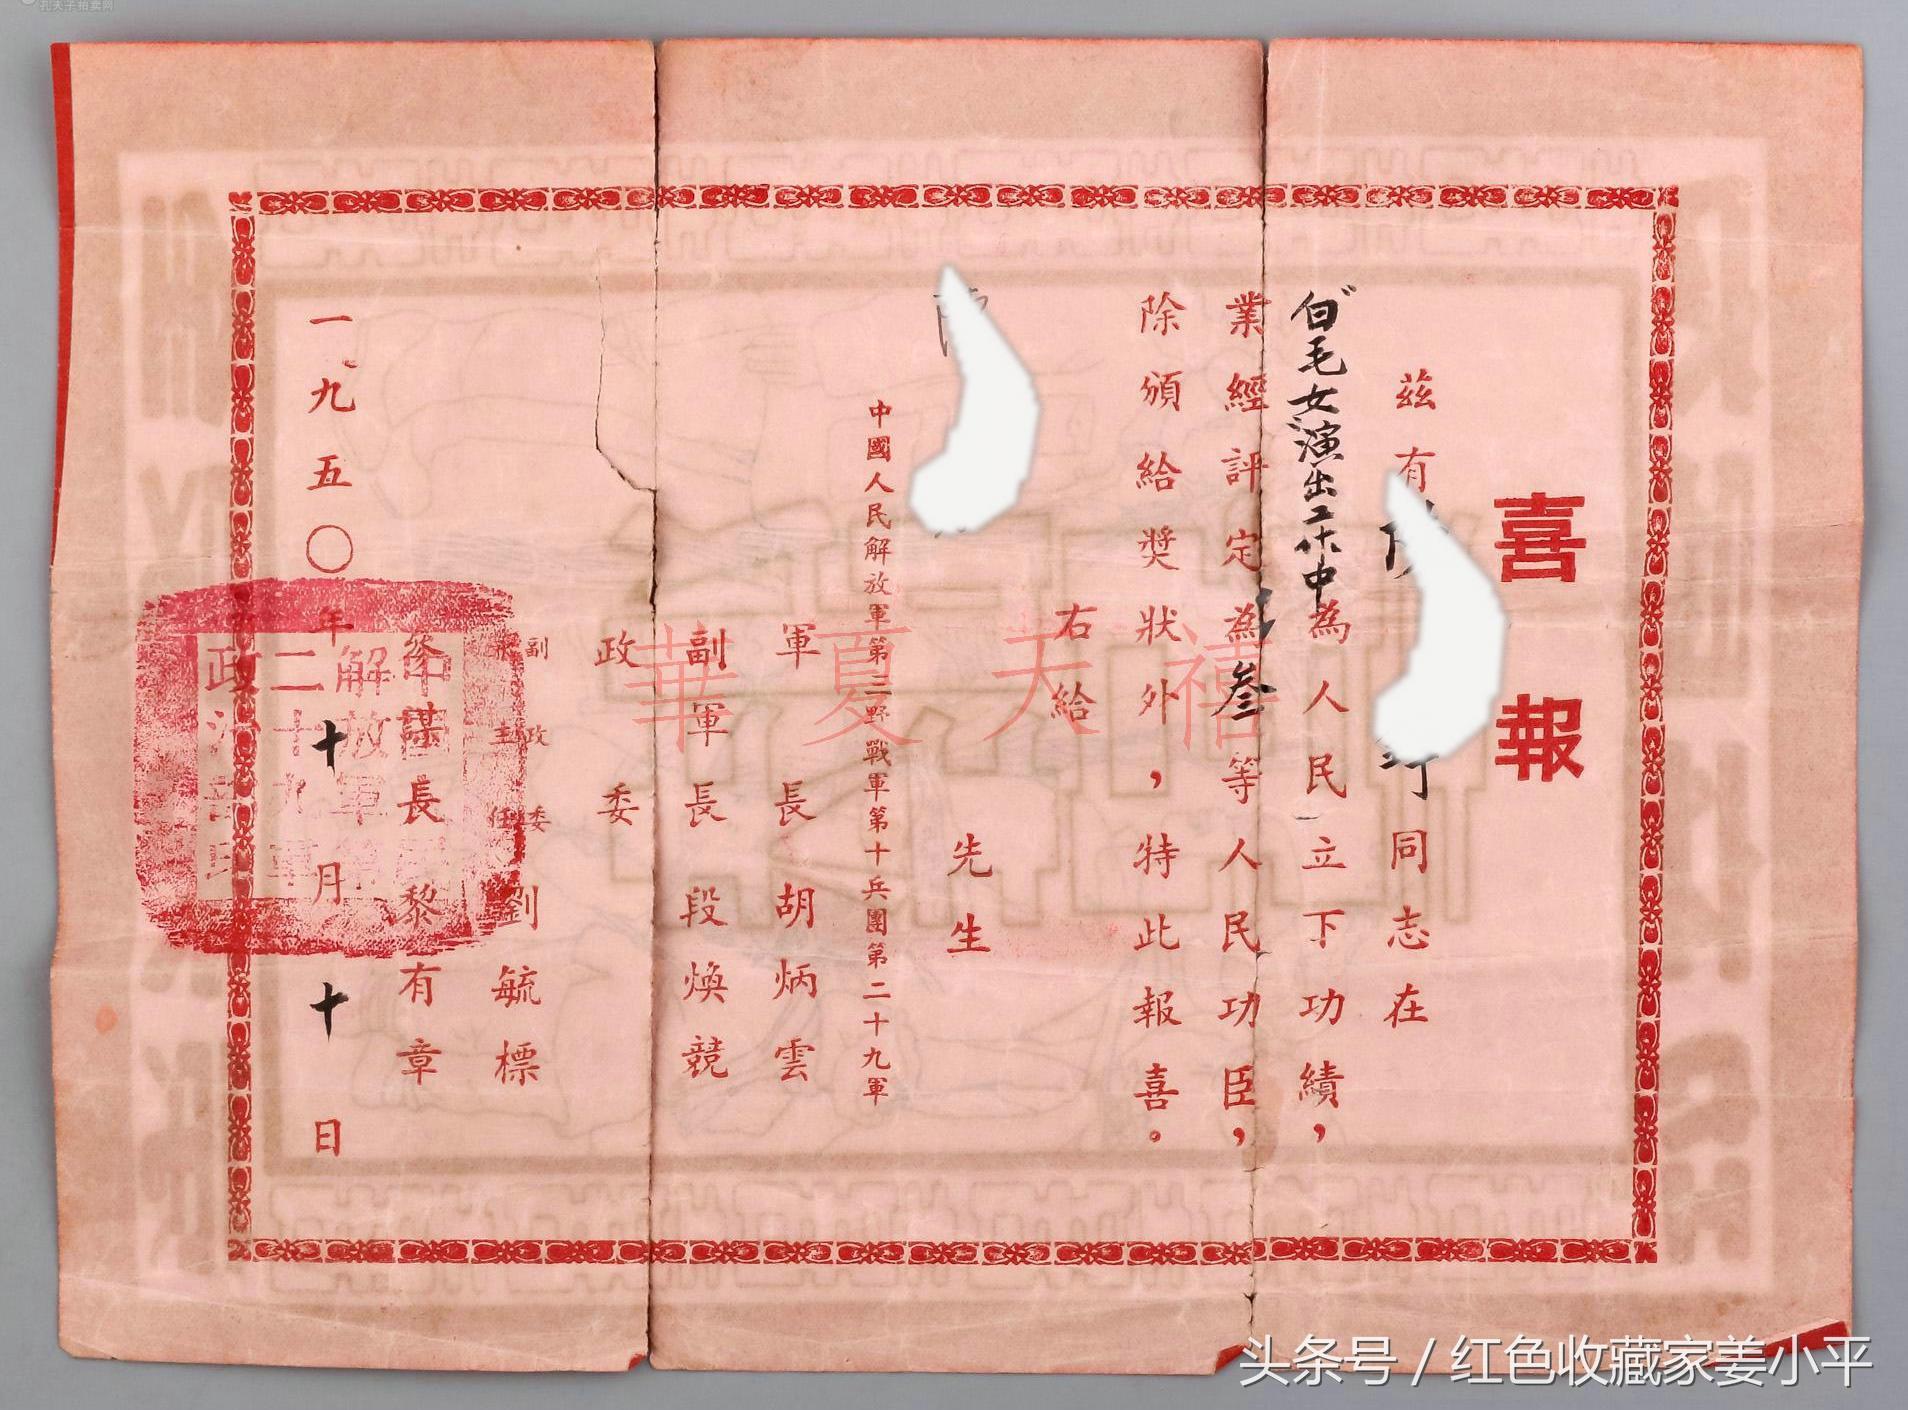 孔夫子拍卖网
喜報
茲有 同志在
白毛女演出工作中為人民立下功績，
業經評定為叁等人民功臣，
除頒給奨狀外，特此報喜。
右給
先生
中國人民解放軍第三野戰軍第十兵團第二十九軍
軍長胡炳雲
副軍長段煥競
政委
副政委
主任
劉毓標
參謀長黎有章
一九五〇年十月十日
解放軍
二十九軍
政治部
華夏天禧
头条号 / 红色收藏家姜小平